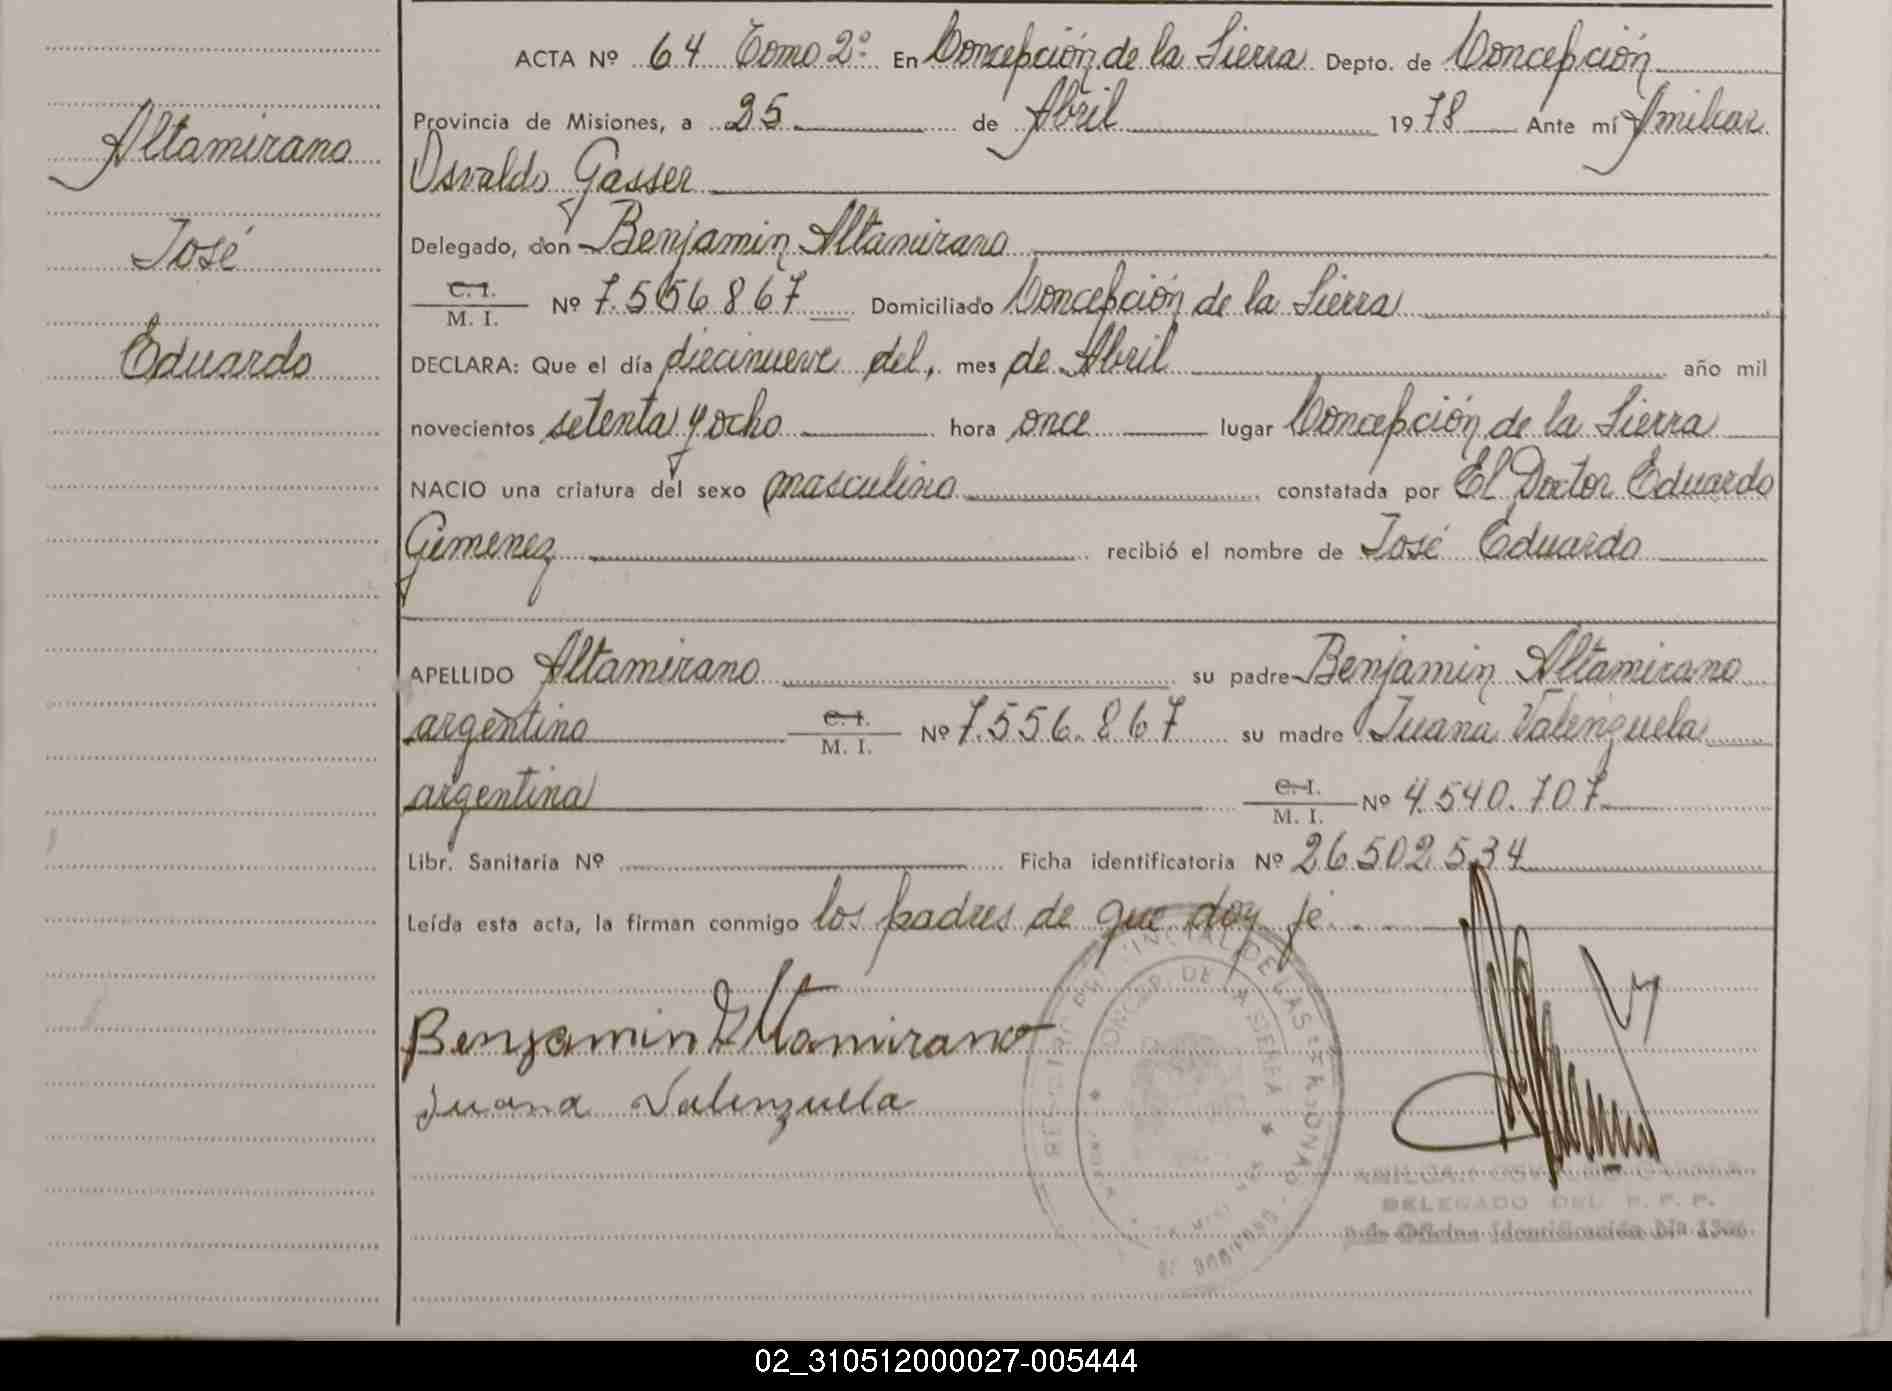 ACTA Nº 64 Tomo 2º En Concepción de la Sierra Depto. de Concepción
Provincia de Misiones, a 25 de Abril 1978 Ante mí Amilcar
Osvaldo Gasser
Delegado, don Benjamin Altamirano
C. I.
M. I. Nº 7.556.867 Domiciliado Concepción de la Sierra
DECLARA: Que el día diecinueve del, mes de Abril año mil
novecientos setenta y ocho hora once lugar Concepción de la Sierra
NACIO una criatura del sexo masculino constatada por El Doctor Eduardo
Gimenez recibió el nombre de José Eduardo
APELLIDO Altamirano su padre Benjamin Altamirano
argentino C. I. M. I. Nº 7.556.867 su madre Juana Valenzuela
argentina C. I. M. I. Nº 4.540.707
Libr. Sanitaria Nº Ficha identificatoria Nº 26.502.534
Leída esta acta, la firman conmigo los padres de que doy fé.
Altamirano
José
Eduardo
Benjamin Altamirano
Juana Valenzuela
DELEGADO DEL R. P. P.
02_310512000027-005444